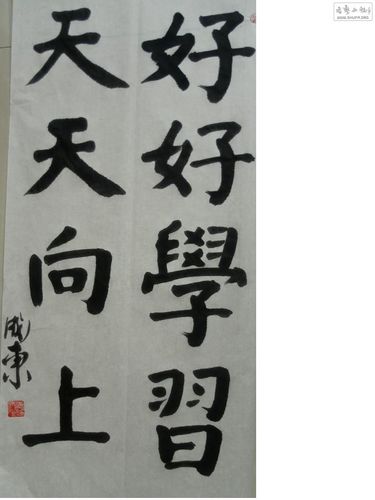 好好學習
天天向上
成東
WWW.SHUFA.ORG